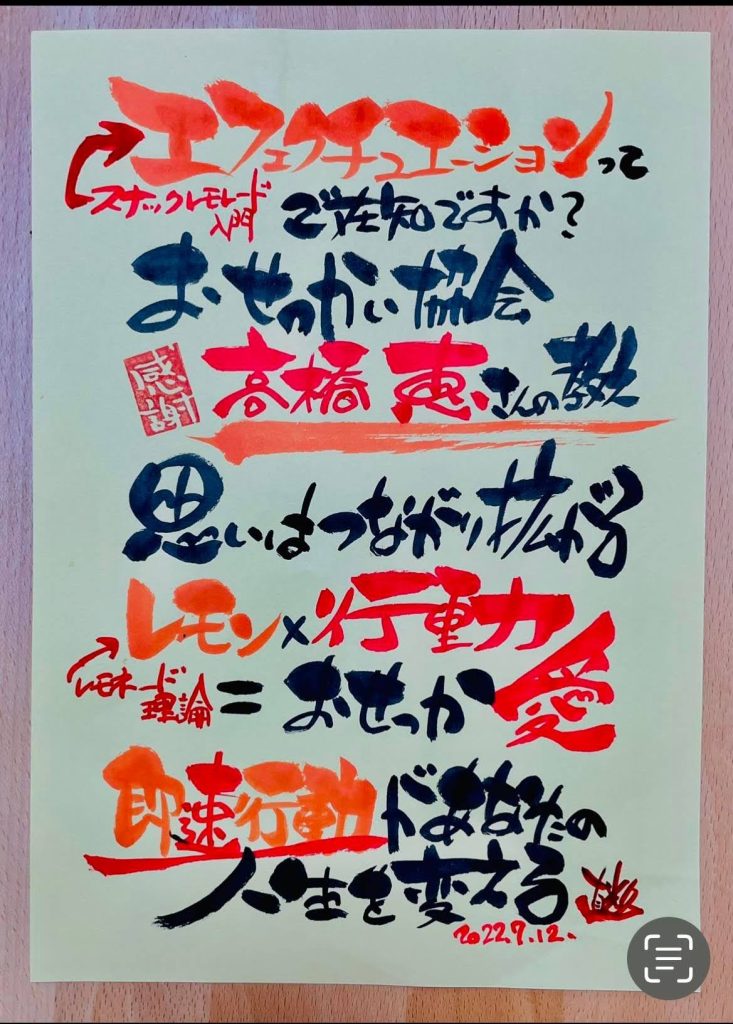 エフェクチュエーションって
スナックレモネード
入門
ご存知ですか?
おせっかい協会
感謝
高橋恵さんの教え
思いはつながり拡がる
レモン×行動力
レモネード
理論
=おせっか愛
即速行動があなたの
人生を変える
2022.7.12.